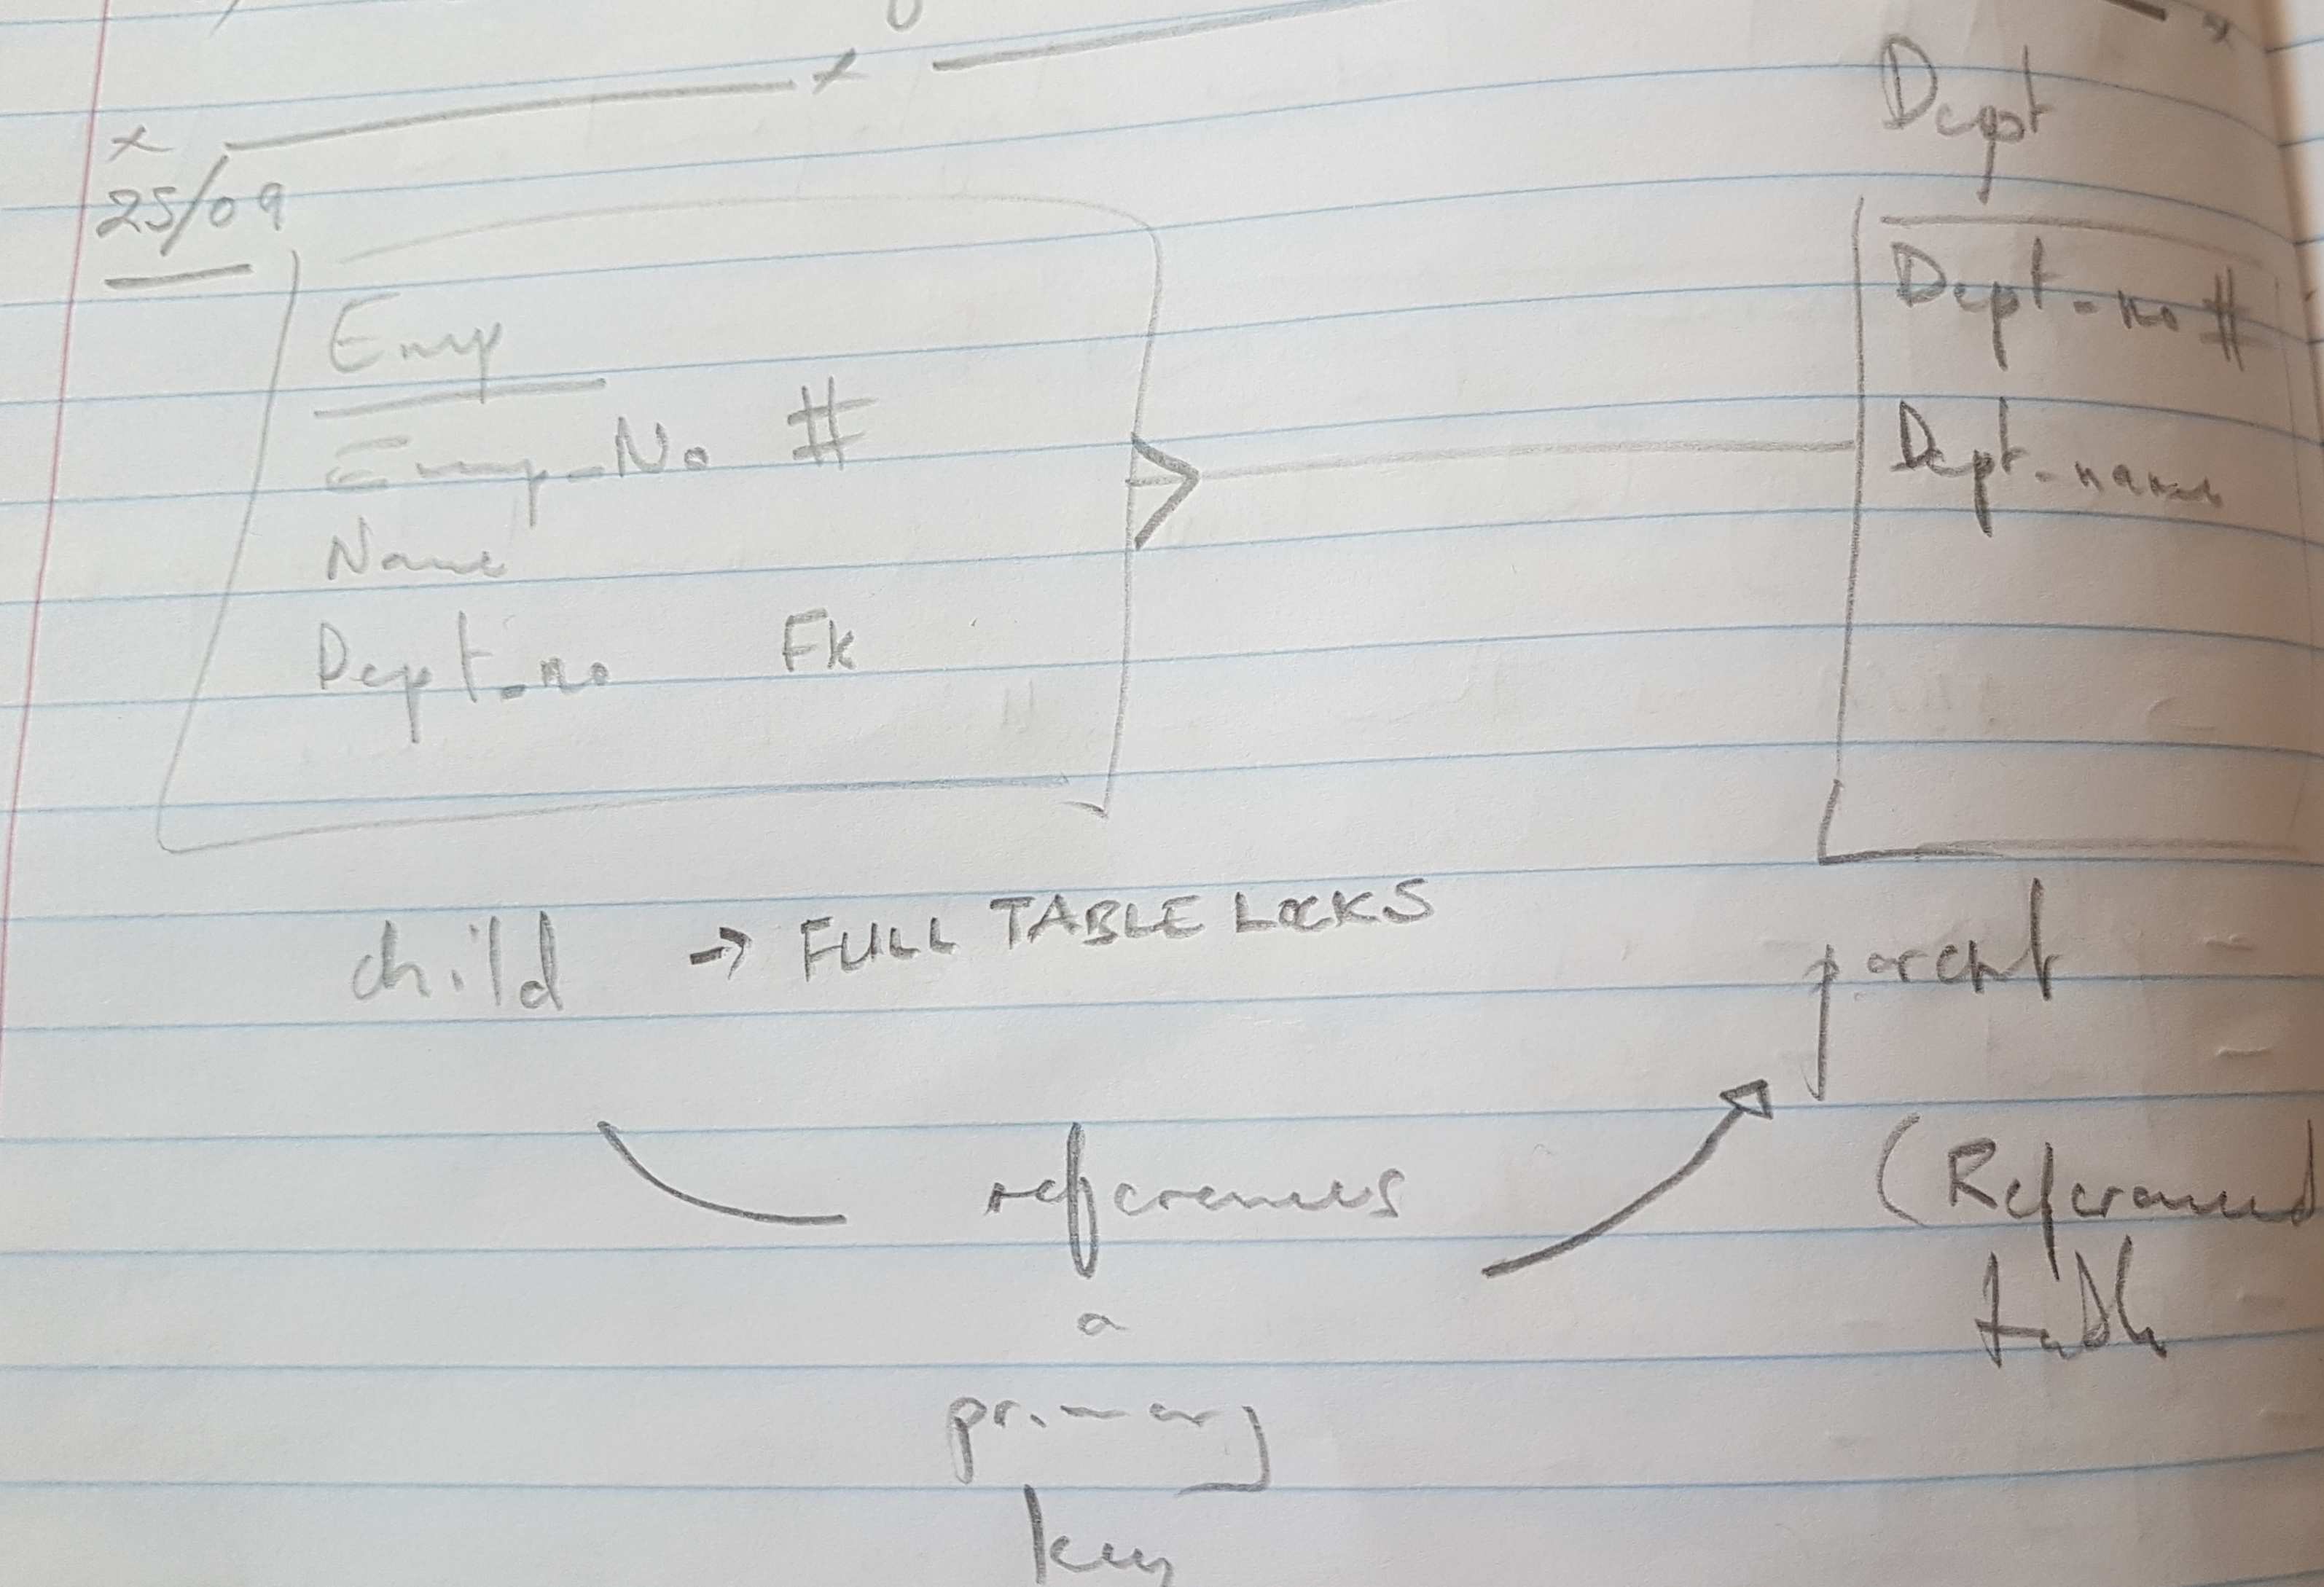 25/09
Emp
Emp_No #
Name
Dept_no FK
Dept
Dept_no #
Dept_name
child → FULL TABLE LOCKS
parent
(Referenced
table
references
a
primary
key